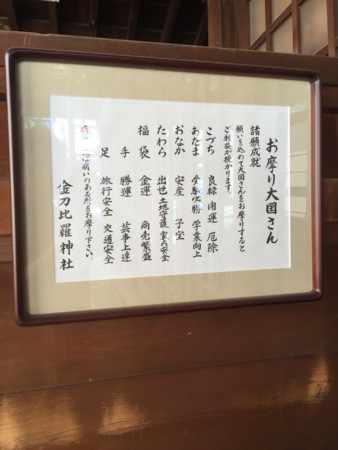 お摩り大国さん
諸願成就
願いを込めて大国さんをお摩りすると
ご利益が授かります。
こづち 良縁 開運 厄除
あたま 受験必勝 学業向上
おなか 安産 子宝
たわら 出世 土地守護 家内安全
福袋 金運 商売繁盛
手 勝運 芸事上達
足 旅行安全 交通安全
病いのある所をお摩り下さい。
金刀比羅神社